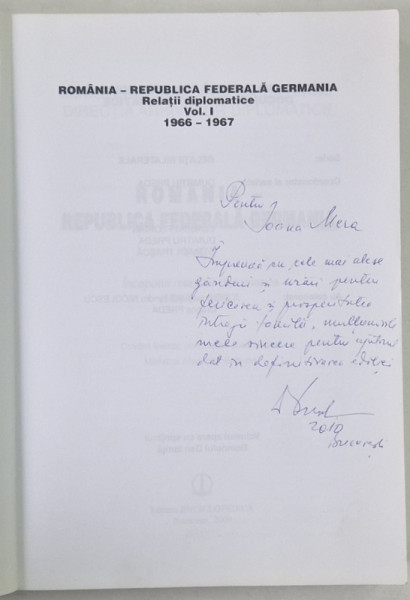 ROMÂNIA – REPUBLICA FEDERALĂ GERMANIA
Relații diplomatice
Vol. I
1966 – 1967
Pentru
Ioana Mera
Împreună cu cele mai alese
gânduri și urări pentru
fericirea și prosperitatea
întregii familii, mulțumirile
mele sincere pentru ajutorul
dat în definitivarea ediției
2010
București